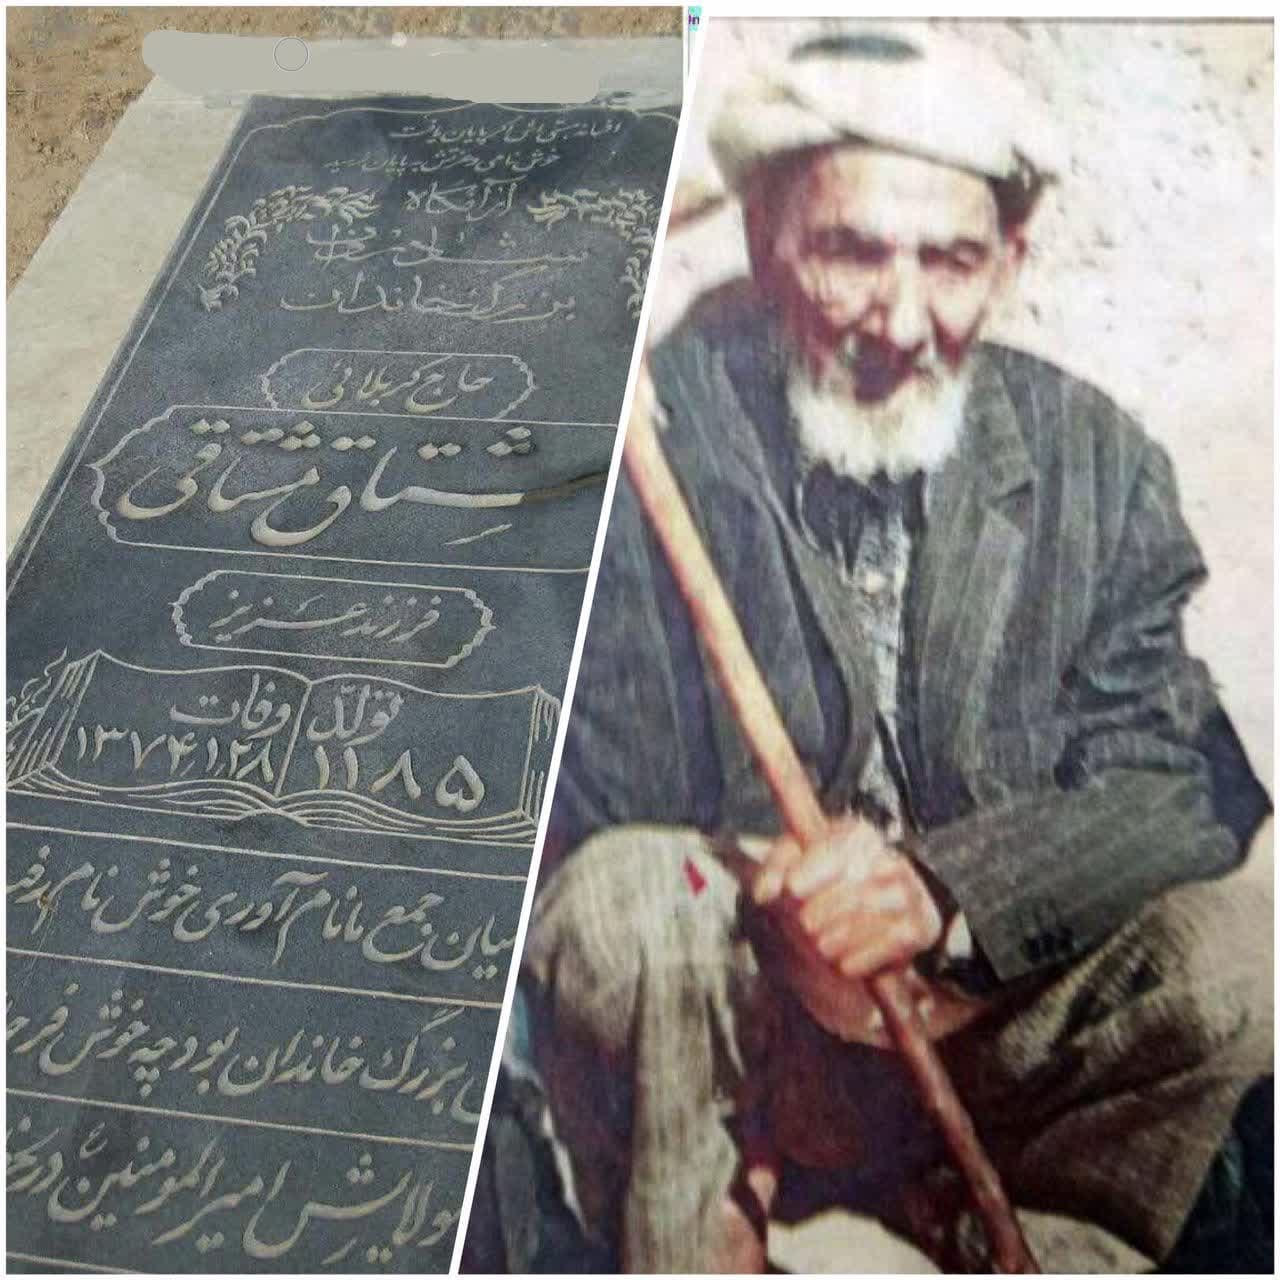 افسانه هستی پایان یافت
خوش نامی و عزتش به پایان نرسید
آرامگاه
شادروان
بزرگ خاندان
حاج کربلائی
مشتاق مشتاقی
فرزند عزیز
تولد وفات
۱۱۸۵ ۱۳۷۴,۱,۲۸
میان جمع ما نام آوری خوش نام
بزرگ خاندان بود چه خوش
مولایش امیرالمومنین ع